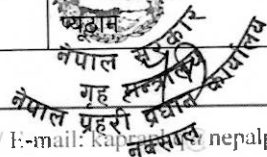 प्यूठान
नेपाल सरकार
गृह मन्त्रालय
नेपाल प्रहरी प्रधान कार्यालय
नक्साल
E-mail: kapra nepalp